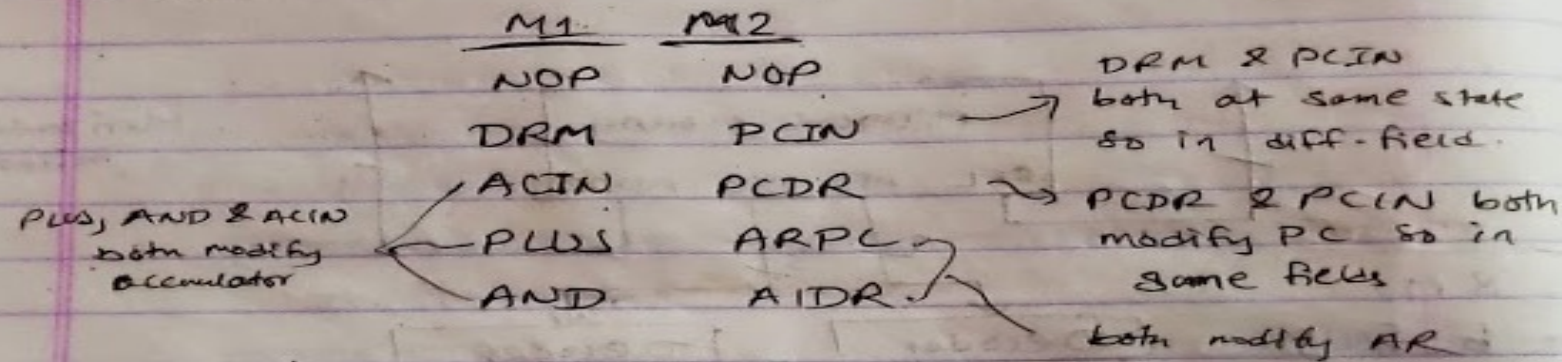 M1 M2
NOP NOP
DRM PCIN
ACIN PCDR
PLUS ARPC
AND AIDR
PLUS, AND & ACIN
both modify
accumulator
DRM & PCIN
both at same state
so in diff. field.
PCDR & PCIN both
modify PC so in
same field
both modify AR